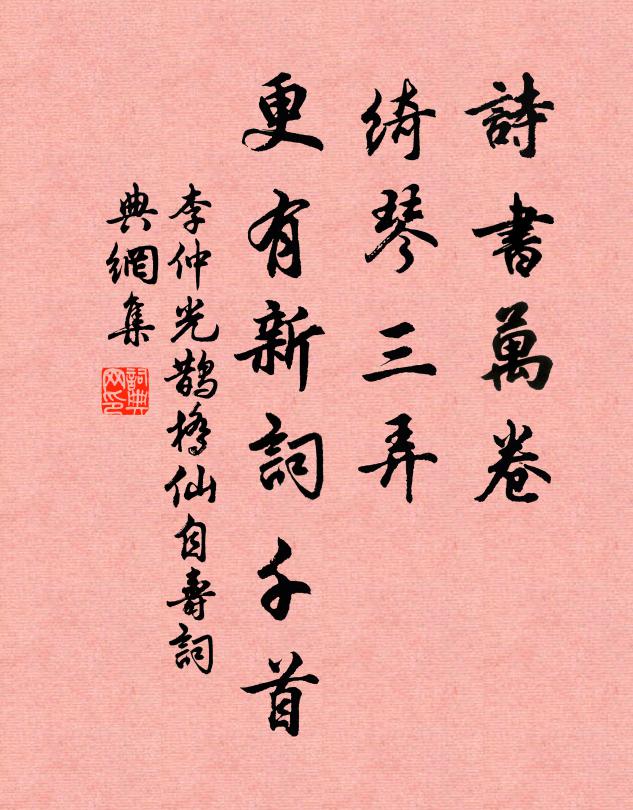 詩書萬卷
綺琴三弄
更有新詞千首
李仲光鵲橋仙自壽詞
典網集
詞典网印